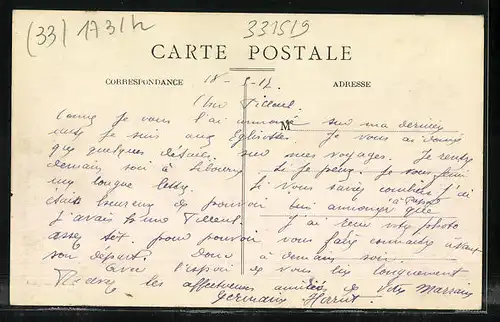 (33) 173/2 331519
CARTE POSTALE
CORRESPONDANCE 18-5-12. ADRESSE
Cher Filleul.
Comme je vous l'ai annoncé sur ma dernière
carte je suis aux Eglisottes. Je vous ai donné
que quelques détails sur mes voyages. Je rentre
demain soir à Libourne. Si je peux, je vous ferai
M
une longue lettre. Si vous saviez combien j'ai
été heureux de pouvoir lui annoncer à Papa que
j'avais un Filleul. J'ai reçu votre photo
assez tôt pour pouvoir vous faire connaître avant
son départ. Donc à demain soir.
Avec l'espoir de vous lire longuement
Recevez les affectueuses amitiés de Votre Marraine
Germaine